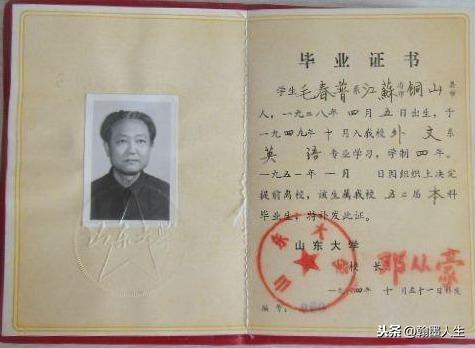 毕业证书
学生毛春普系江蘇省市铜山县市
人，一九二八年四月五日出生，于
一九四九年十月入我校外文系
英语专业学习，学制四年。
一九五一年一月 日因组织上决定
提前离校，该生属我校五二届本科
毕业生，特补发此证。
山东大学
校长 邓从豪
一九八四年十月三十一日补发
编号：
山东大学
山东大学
头条 @翰墨人生